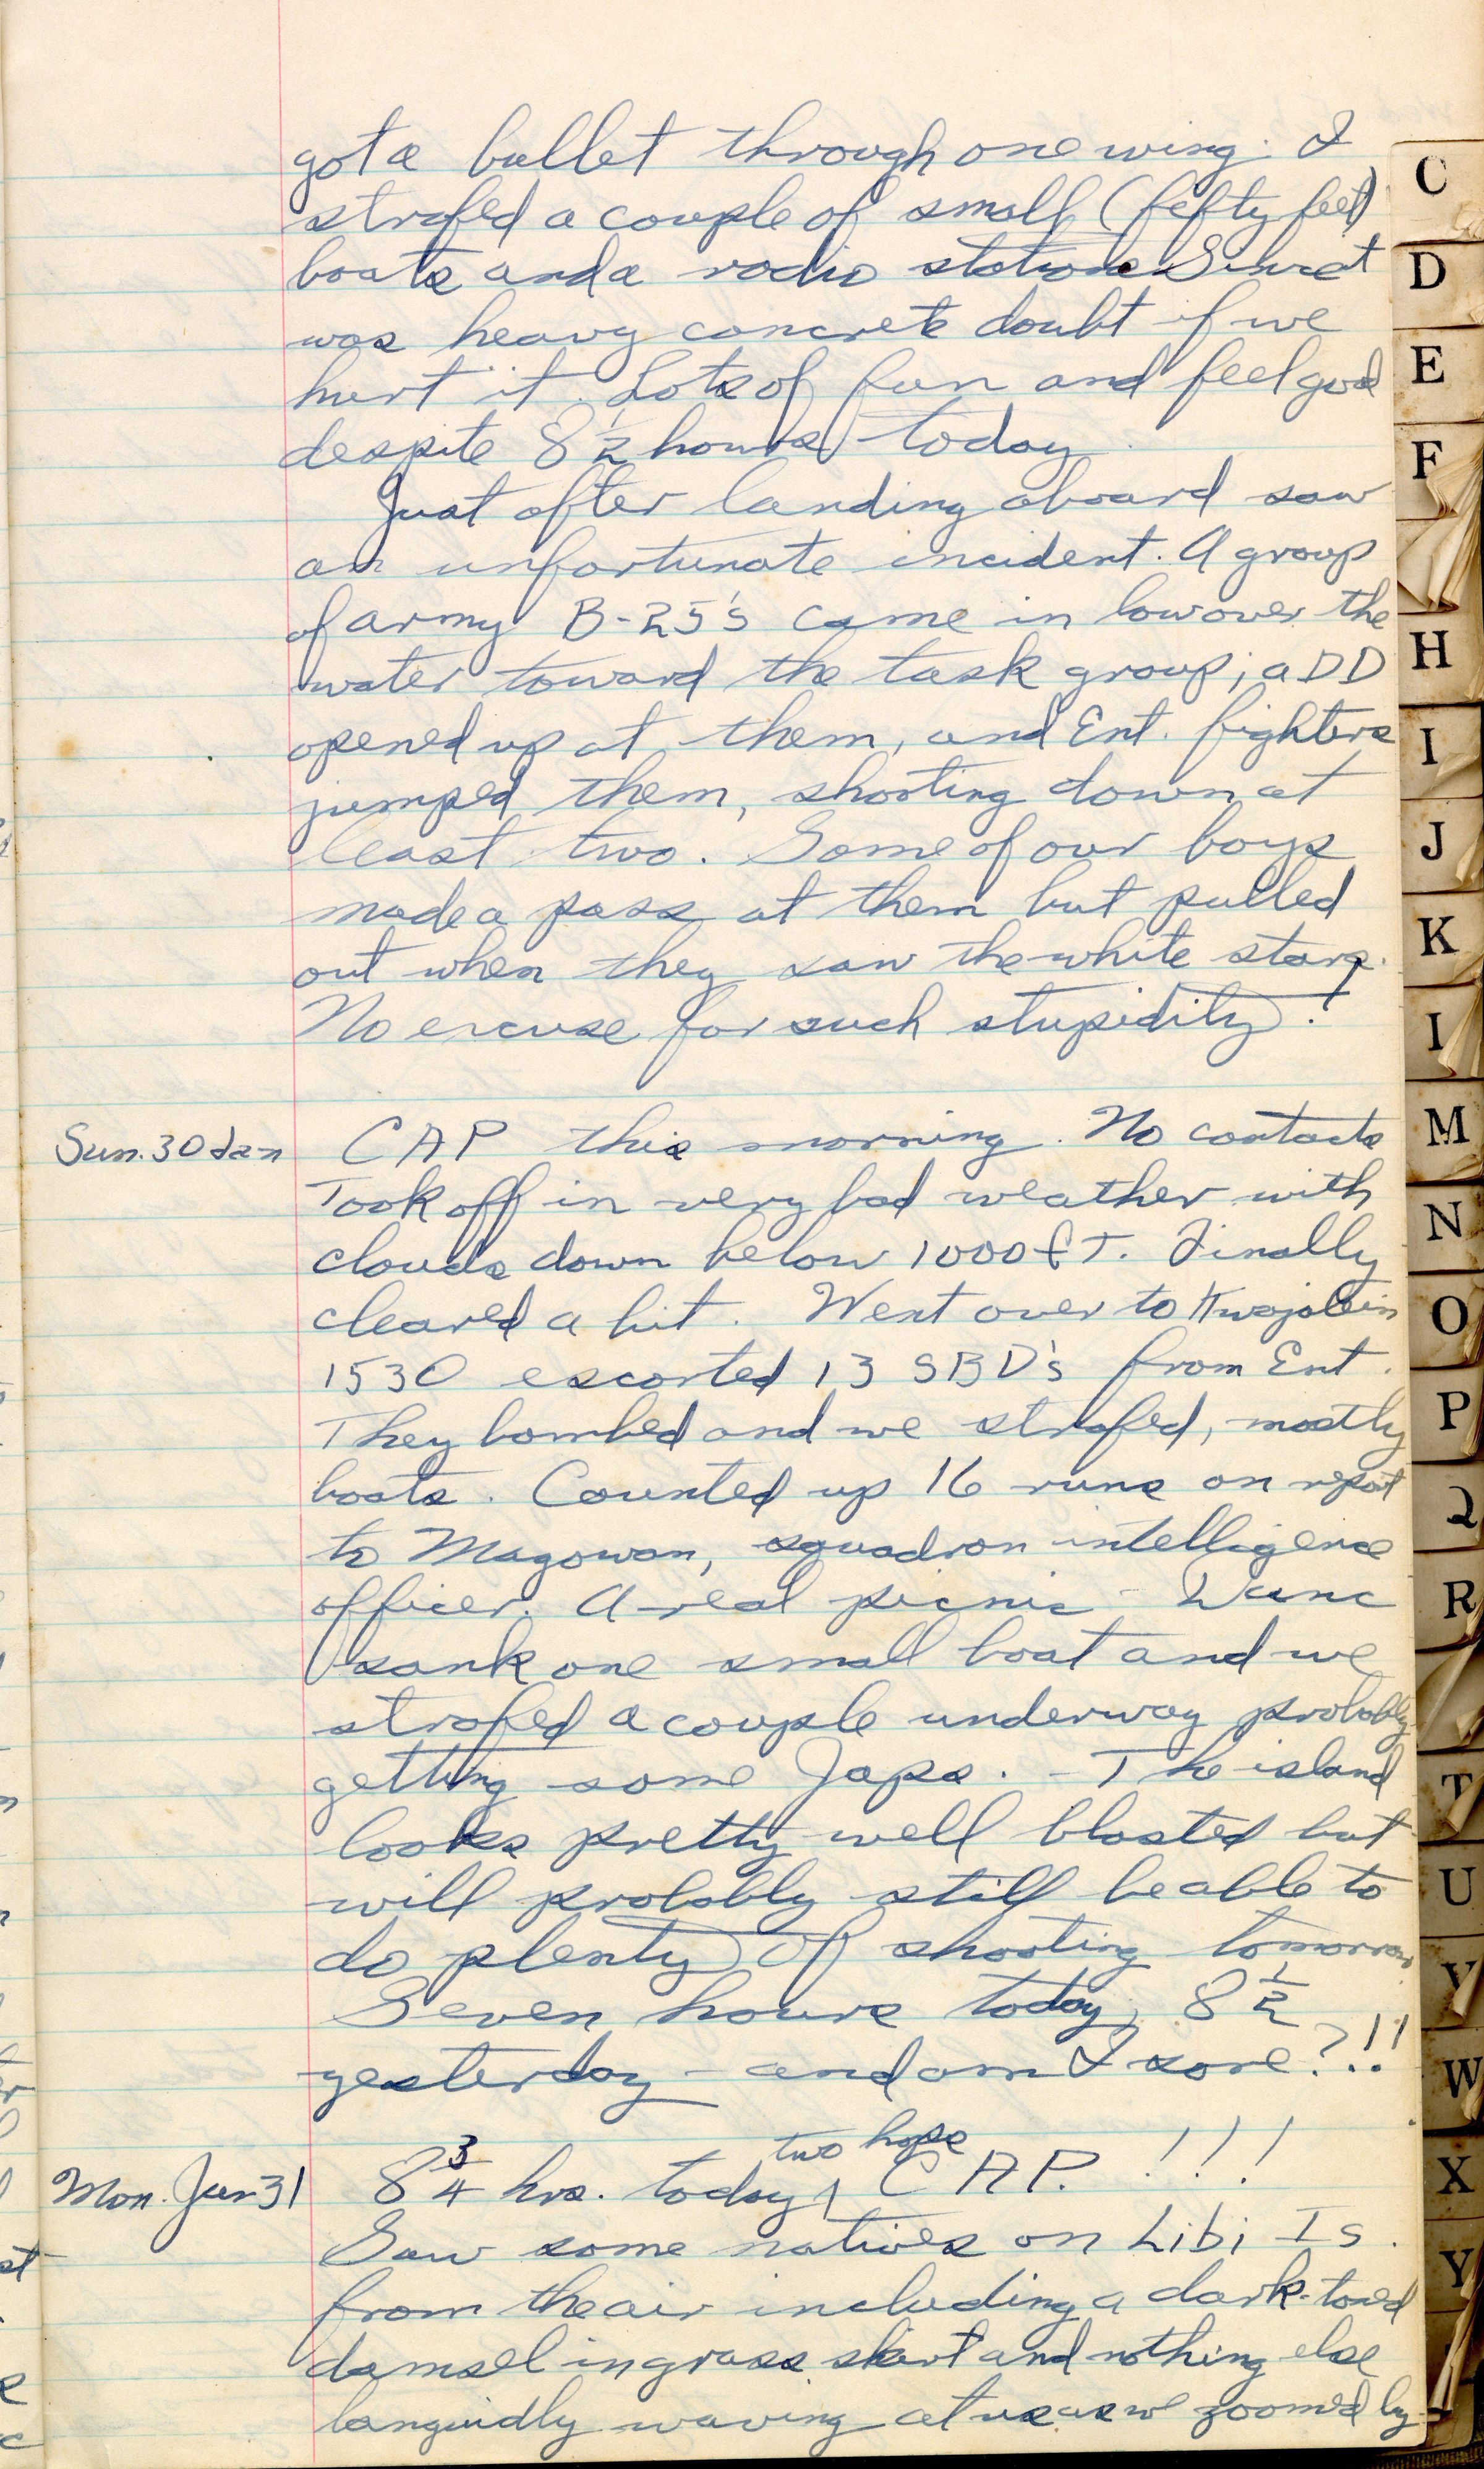 got a bullet through one wing. I
strafed a couple of small (fifty feet)
boats and a radio station. Since it
was heavy concrete doubt if we
hurt it. Lots of fun and feel good
despite 8 1/2 hours today.
Just after landing aboard saw
an unfortunate incident. A group
of army B-25's came in low over the
water toward the task group; a DD
opened up at them, and Ent. fighters
jumped them, shooting down at
least two. Some of our boys
made a pass at them but pulled
out when they saw the white stars.
No excuse for such stupidity!
Sun. 30 Jan CAP this morning. No contacts
Took off in very bad weather with
clouds down below 1000 ft. Finally
cleared a bit. Went over to Kwajalein
1530 escorted 13 SBD's from Ent.
They bombed and we strafed, mostly
boats. Counted up 16 runs on report
to Magowan, squadron intelligence
officer. A real picnic - Dunc
sank one small boat and we
strafed a couple underway probably
getting some Japs. - The island
looks pretty well blasted but
will probably still be able to
do plenty of shooting tomorrow.
Seven hours today, 8 1/2
yesterday - and am I sore?!!
Mon. Jan 31 8 3/4 hrs. today, two hops CAP. !!!
Saw some natives on Libi Is.
from the air including a dark-toned
damsel in grass skirt and nothing else
languidly waving at us as we zoomed by
C
D
E
F
H
I
J
K
M
N
O
P
Q
R
T
U
V
W
X
Y